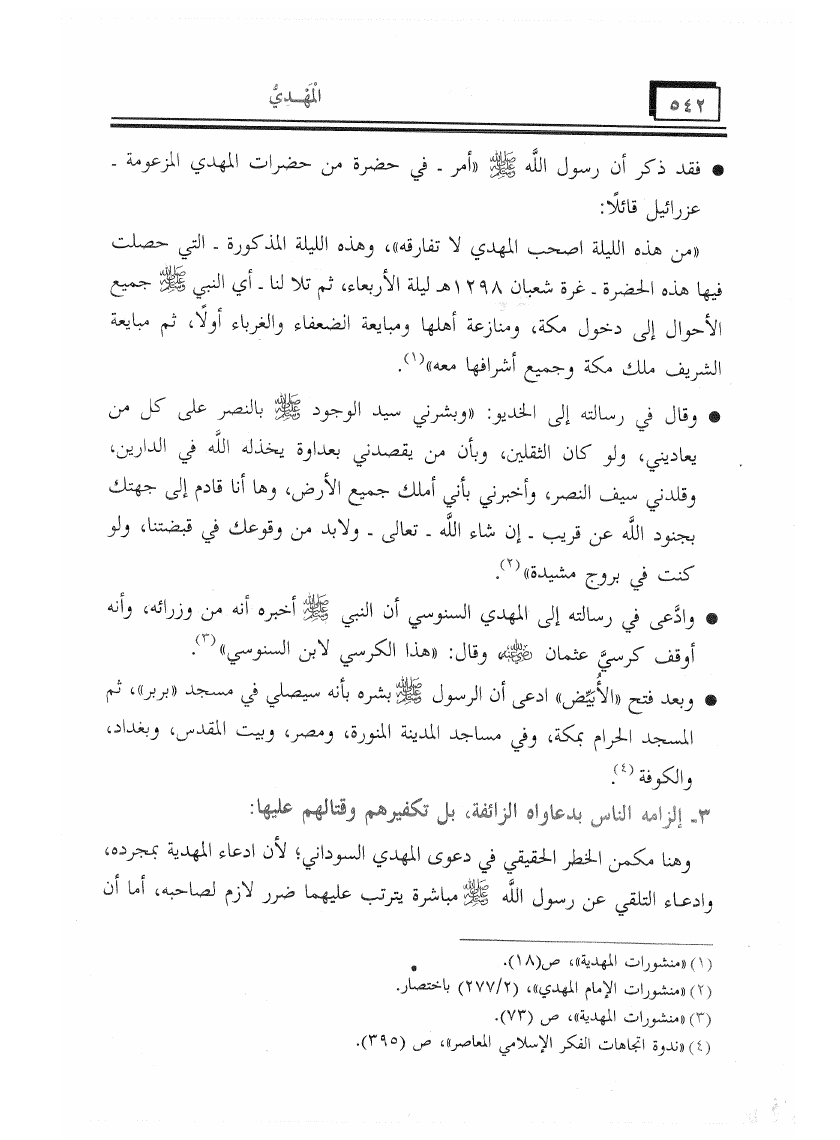 ٥٤٢
الْمَهْـدِيُّ
● فقد ذكر أن رسول اللَّه ﷺ «أمر ـ في حضرة من حضرات المهدي المزعومة ـ
عزرائيل قائلًا:
«من هذه الليلة اصحب المهدي لا تفارقه»، وهذه الليلة المذكورة ـ التي حصلت
فيها هذه الحضرة ـ غرة شعبان ١٢٩٨هـ ليلة الأربعاء، ثم تلا لنا ـ أي النبي ﷺ جميع
الأحوال إلى دخول مكة، ومنازعة أهلها ومبايعة الضعفاء والغرباء أولًا، ثم مبايعة
الشريف ملك مكة وجميع أشرافها معه»(١).
● وقال في رسالته إلى الخديو: «وبشرني سيد الوجود ﷺ بالنصر على كل من
يعاديني، ولو كان الثقلين، وبأن من يقصدني بعداوة يخذله اللَّه في الدارين،
وقلدني سيف النصر، وأخبرني بأني أملك جميع الأرض، وها أنا قادم إلى جهتك
بجنود اللَّه عن قريب ـ إن شاء اللَّه ـ تعالى ـ ولابد من وقوعك في قبضتنا، ولو
كنت في بروج مشيدة»(٢).
● وادَّعى في رسالته إلى المهدي السنوسي أن النبي ﷺ أخبره أنه من وزرائه، وأنه
أوقف كرسيَّ عثمان رضي الله عنه وقال: «هذا الكرسي لابن السنوسي»(٣).
● وبعد فتح «الأُبيِّض» ادعى أن الرسول ﷺ بشره بأنه سيصلي في مسجد «بربر»، ثم
المسجد الحرام بمكة، وفي مساجد المدينة المنورة، ومصر، وبيت المقدس، وبغداد،
والكوفة (٤).
٣ـ إلزامه الناس بدعاواه الزائفة، بل تكفيرهم وقتالهم عليها:
وهنا مكمن الخطر الحقيقي في دعوى المهدي السوداني؛ لأن ادعاء المهدية بمجرده،
وادعاء التلقي عن رسول اللَّه ﷺ مباشرة يترتب عليهما ضرر لازم لصاحبه، أما أن
(١) «منشورات المهدية»، ص(١٨).
(٢) «منشورات الإمام المهدي»، (٢/ ٢٧٧) باختصار.
(٣) «منشورات المهدية»، ص (٧٣).
(٤) «ندوة اتجاهات الفكر الإسلامي المعاصر»، ص (٣٩٥).